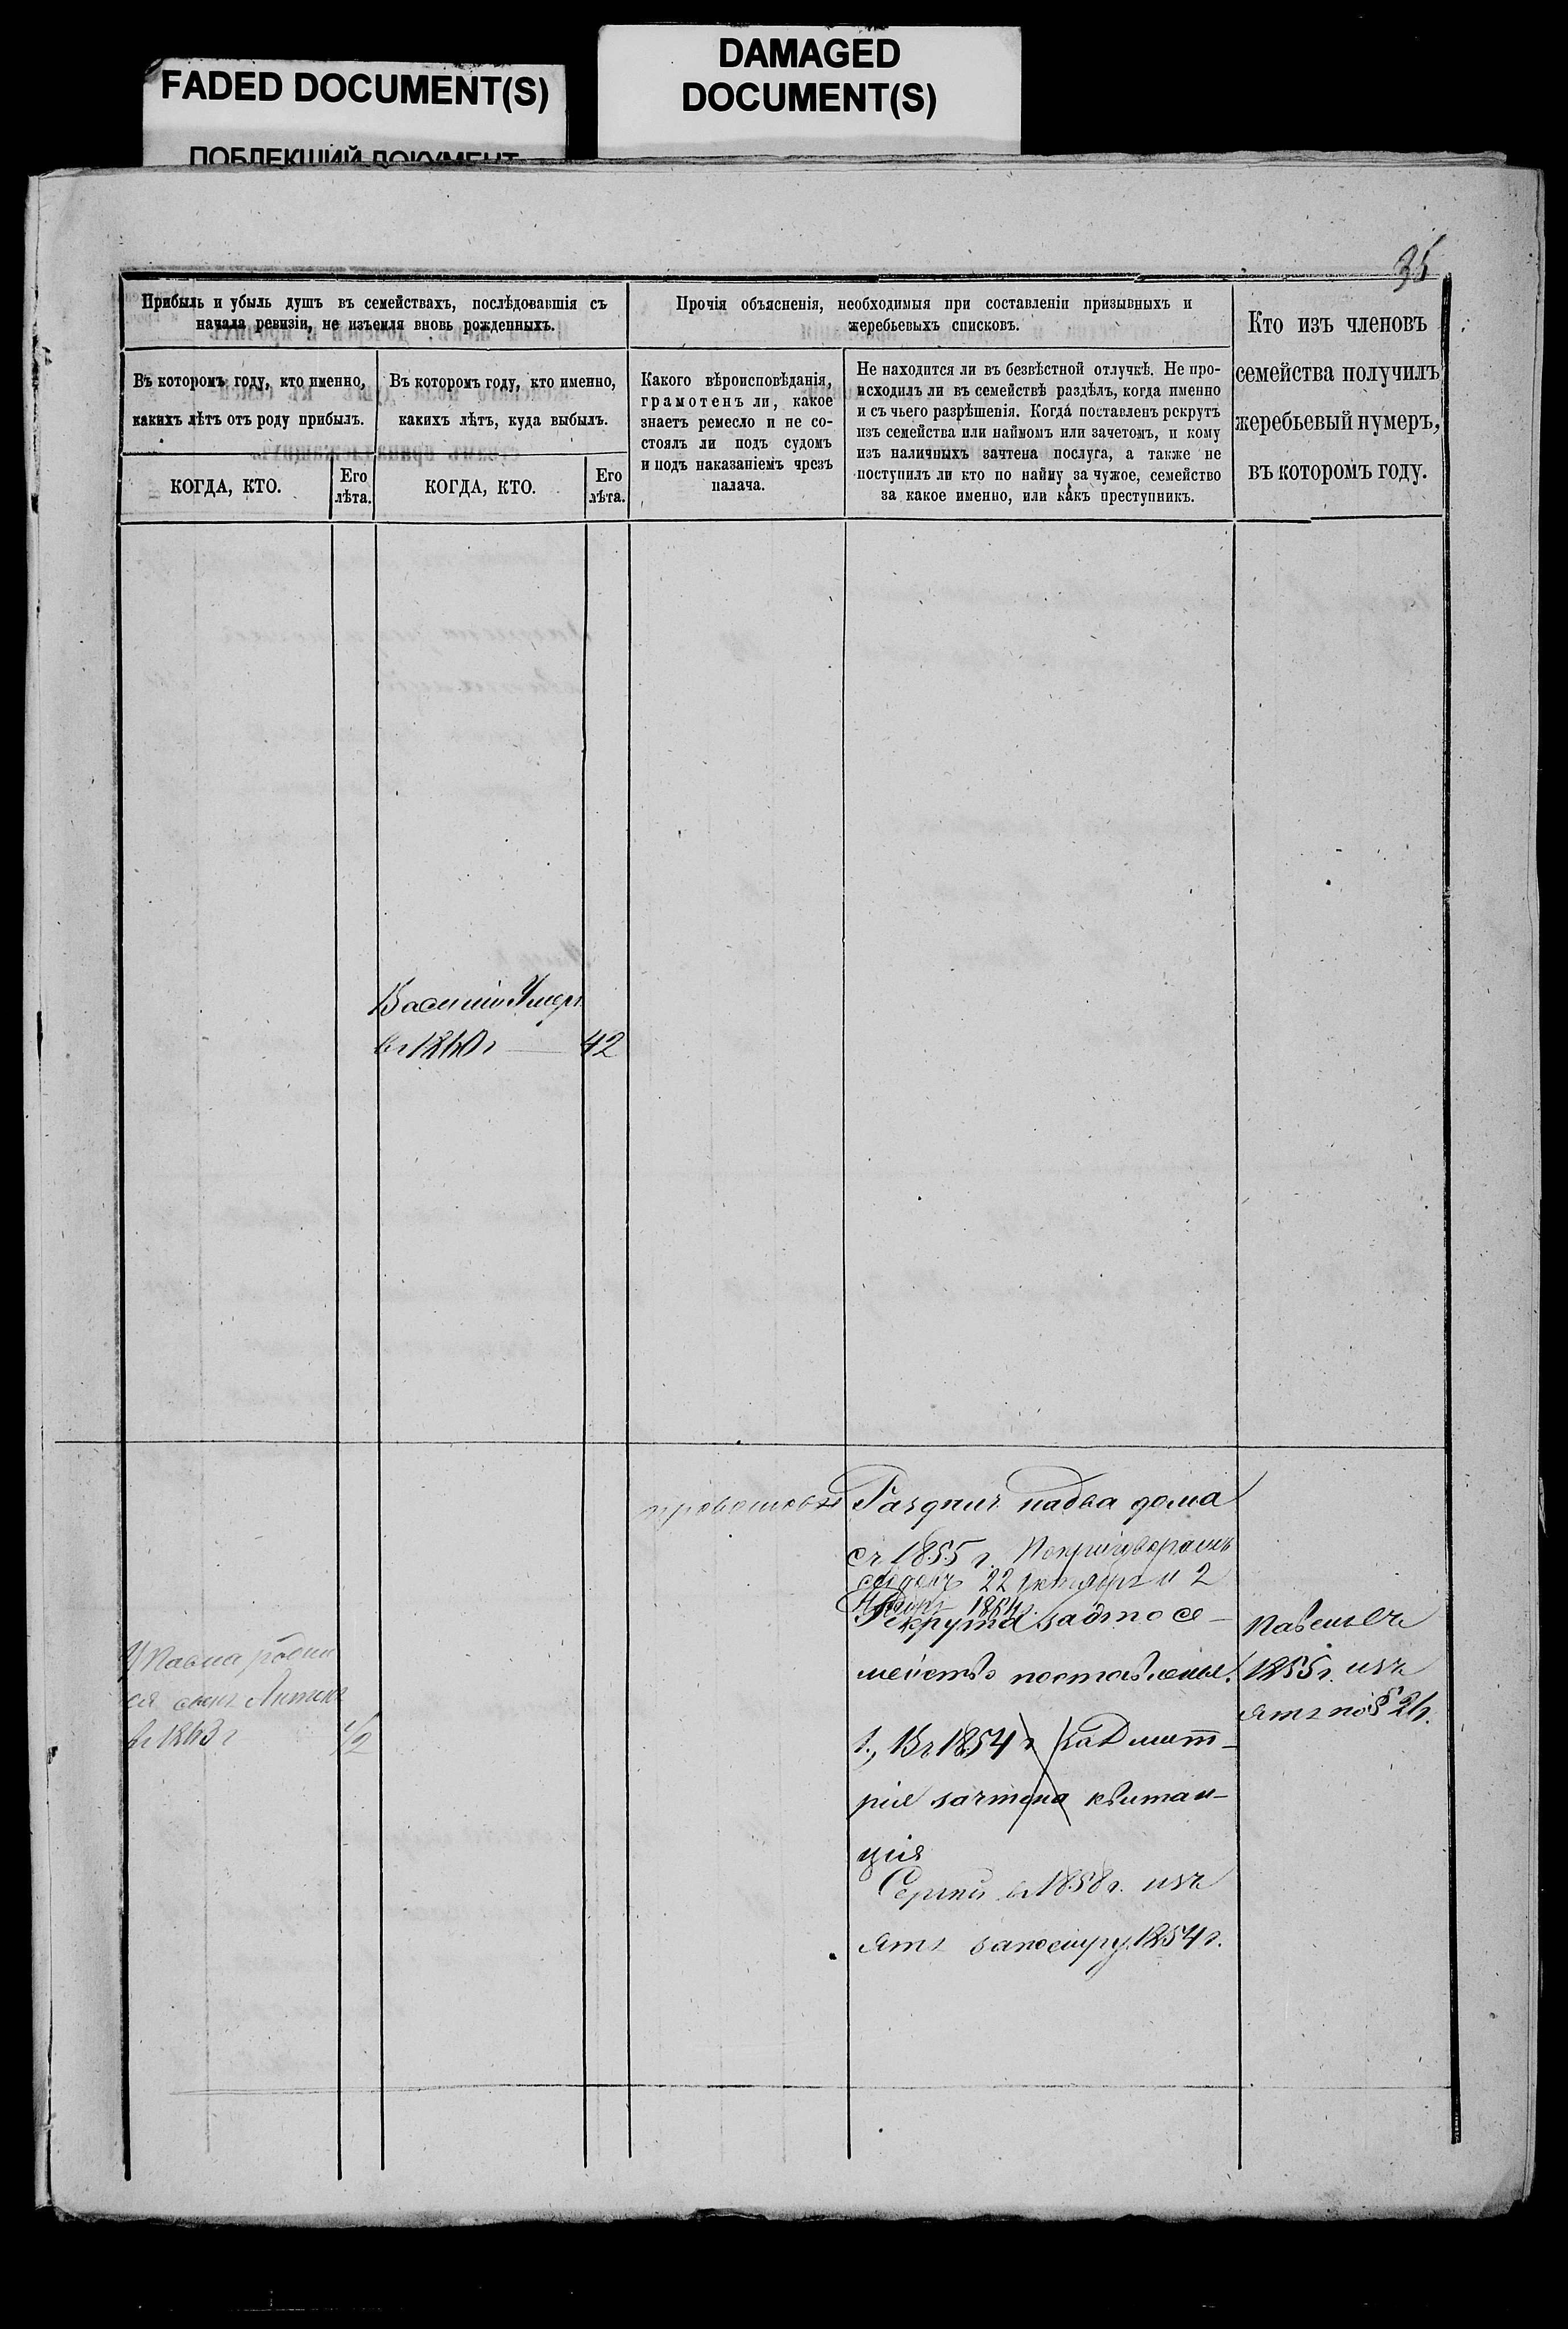 FADED DOCUMENT(S)
ПОБЛЕКШИЙ ДОКУМЕНТ
DAMAGED
DOCUMENT(S)
35
Прибыль и убыль душъ въ семействахъ, послѣдовавшія съ
начала ревизіи, не изъемля вновь рожденныхъ.
Въ которомъ году, кто именно,
какихъ лѣтъ отъ роду прибылъ.
КОГДА, КТО.
Его
лѣта.
Въ которомъ году, кто именно,
какихъ лѣтъ, куда выбылъ.
КОГДА, КТО.
Его
лѣта.
Прочія объясненія, необходимыя при составленіи призывныхъ и
жеребьевыхъ списковъ.
Какого вѣроисповѣданія,
грамотенъ ли, какое
знаетъ ремесло и не со-
стоялъ ли подъ судомъ
и подъ наказаніемъ чрезъ
палача.
Не находится ли въ безвѣстной отлучкѣ. Не про-
исходилъ ли въ семействѣ раздѣлъ, когда именно
и съ чьего разрѣшенія. Когда поставленъ рекрутъ
изъ семейства или наймомъ или зачетомъ, и кому
изъ наличныхъ зачтена послуга, а также не
поступилъ ли кто по найму за чужое, семейство
за какое именно, или какъ преступникъ.
Кто изъ членовъ
семейства получилъ
жеребьевый нумеръ,
въ которомъ году.
Василій Умеръ
въ 1860 г 42
У Павла родил
ся сынъ Антонъ
въ 1863 г 1/2
православн
на два дома
съ 1855 г. По приговорамъ
22 октября и 2
1854 г.
Рекрута за это се-
мейство поставлены.
1., Въ 1854 г за Дмит-
рія зачтена квитан-
ція
Сергѣй въ 1858 г. изъ
ятъ 1854 г.
Павелъ въ
1855 г. изъ
ятъ по § 26.